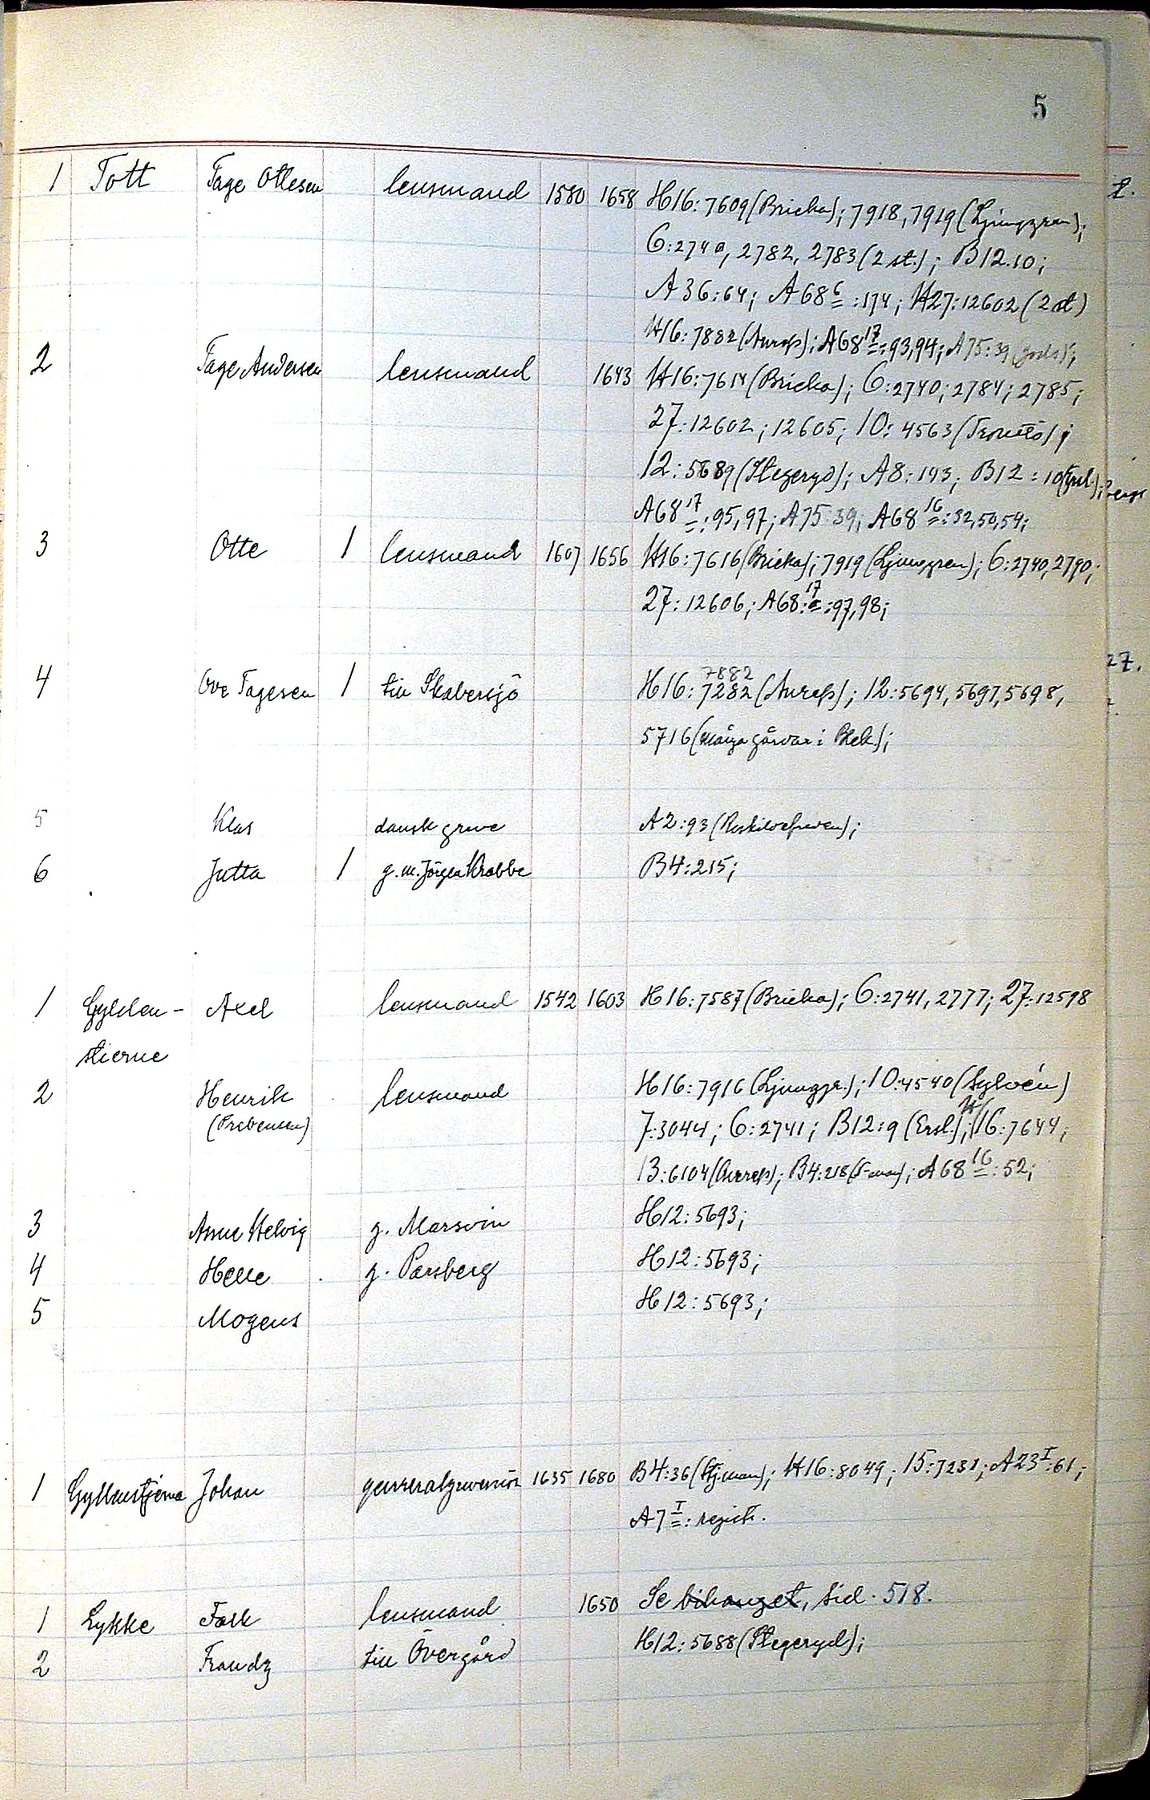 5
1 Tott Tage Ottesen lensmand 1580 1658 H16:7609 (Bricka); 7918, 7919 (Ljunggren);
6:2740, 2782, 2783 (2 st.); B12:10;
A36:64; A68 6:174; H27:12602 (2 st)
H16:7882 (Anrep); A68 17:93,94; A75:39
2 Tage Andersen lensmand 1643 H16:7614 (Bricka); 6:2740; 2784; 2785;
27:12602; 12605; 10:4563
12:5689 (Stegeryd); A8:143; B12:10
A68 17:95,97; A75:39; A68 16:32,50,54;
3 Otte 1 lensmand 1607 1656 H16:7616 (Bricka); 7919 (Ljunggren); 6:2740, 2790;
27:12606; A68:17:97,98;
4 Ove Tagesen 1 till Skabersjö 7882
H16:7282 (Anrep); 12:5694, 5697, 5698,
5716 (många gårdar i Blek);
5 Klas dansk greve A2:93 (Roskildefreden);
6 Jutta 1 g. m. Jörgen Krabbe B4:215;
1 Gylden- Axel lensmand 1542 1603 H16:7587 (Bricka); 6:2741, 2777; 27:12598
stierne
2 Henrik lensmand H16:7916 (Ljunggr.); 10:4540 (Sylvén)
(Prebensen) 7:3044; 6:2741; B12:9 (Ersl.); H16:7644;
13:6104 (Anrep); B4:218; A68 16:52;
3 Anne Helvig g. Marsvin H12:5693;
4 Helle g. Parsberg H12:5693;
5 Mogens H12:5693;
1 Gyllenstjerna Johan generalguvernör 1635 1680 B4:36; H16:8049; 15:7281; A23 I:61;
A7 I: registr.
1 Lykke Falk lensmand 1650 Se bihanget, sid. 518.
2 Frandz till Övergård H12:5688 (Stegeryd);
27.